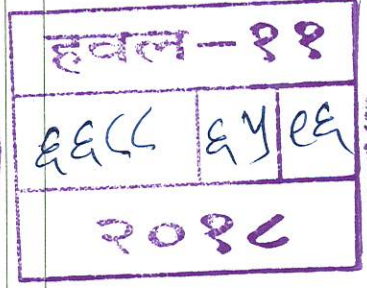 हवल - ११
६६८८ ६५ ९६
२०१८